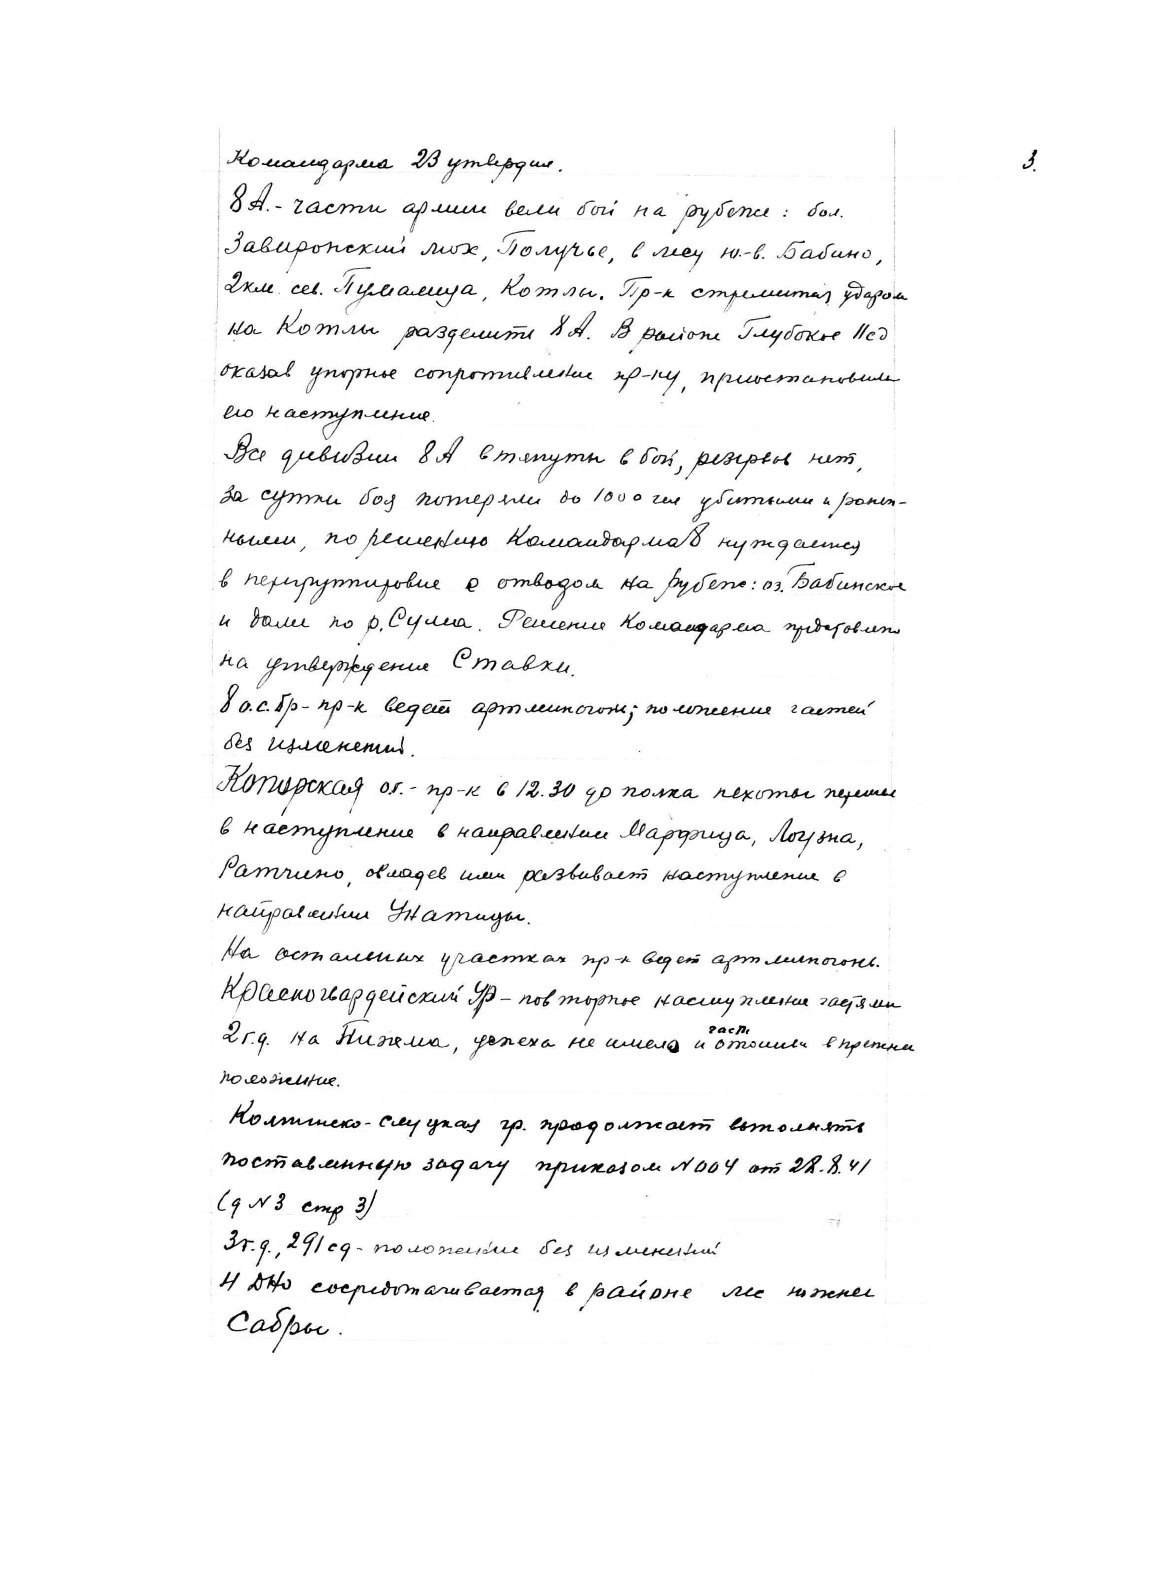 Командарма 23 утвердил.
3.
8 А. - части армии вели бой на рубеже: бол.
Завиронский мох, Получье, в лесу ю.-в. Бабино,
2 км. сев. Пумалица, Котлы. Пр-к стремится ударом
на Котлы разделить 8 А. В районе Глубокое 11 сд
оказав упорное сопротивление пр-ку, приостановили
его наступление.
Все дивизии 8 А втянуты в бой, резервов нет,
за сутки боя потеряли до 1000 чел убитыми и ранен-
ными, по решению Командарма 8 нуждается
в перегруппировке с отводом на рубеж: оз. Бабинское
и далее по р. Сума. Решение Командарма представлено
на утверждение Ставки.
8 о.с.бр - пр-к ведет артминогонь; положение частей
без изменений.
Копорская ог. - пр-к в 12.30 до полка пехоты перешел
в наступление в направлении Марфица, Логузна,
Ратчино, овладев ими развивает наступление в
направлении Унатицы.
На остальных участках пр-к ведет артминогонь.
Красногвардейский УР - повторное наступление частями
2 г.д. на Пижма, успеха не имело и части отошли в прежнее
положение.
Колпинско-слуцкая гр. продолжает выполнять
поставленную задачу приказом N 004 от 28.8.41
(д N 3 стр 3)
3 г.д., 291 сд - положение без изменений
4 ДНО сосредотачивается в районе лес южнее
Сабры.